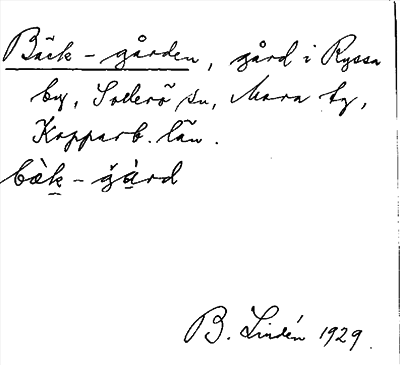 Bäck-gården, gård i Ryssa
by, Sollerö sn, Mora tg,
Kopparb. län.
bæ̀k-gàrd
B. Lindén 1929.